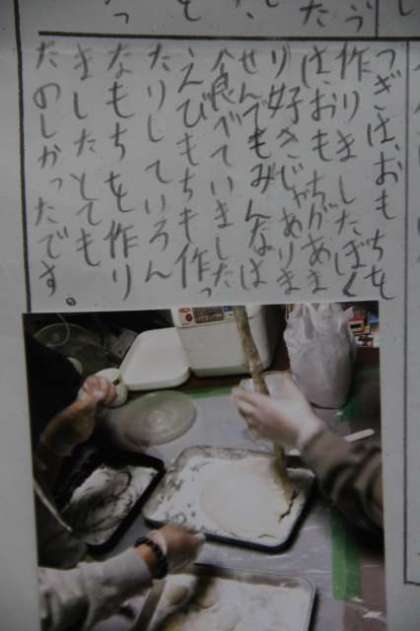 つぎは、おもちを
作りました。ぼく
は、おもちがあま
り好きじゃありま
せんでもみんなは
食べていました
えびもちも作っ
たりしていろん
なもちを作り
ましたとても
たのしかったです。